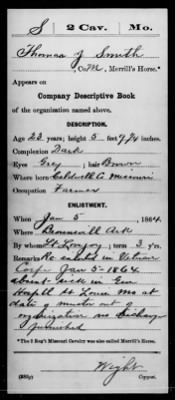 S | 2 Cav. | Mo.
Thomas J Smith
, Co. M, Merrill's Horse.*
Appears on
Company Descriptive Book
of the organization named above.
DESCRIPTION.
Age 23 years; height 5 feet 9 3/4 inches.
Complexion Dark
Eyes Grey; hair Brown
Where born Caldwell Co. Missouri
Occupation Farmer
ENLISTMENT.
When Jan 5, 1864.
Where Ark
By whom Lt. Lovejoy; term 3 y'rs.
Remarks: Re enlisted in Veteran
Corps Jan 5 - 1864
absent sick in Gen
Hospl St Louis Mo at
date of muster out of
organization no discharge
furnished
*The 2 Reg't Missouri Cavalry was also called Merrill's Horse.
Wright
Copyist.